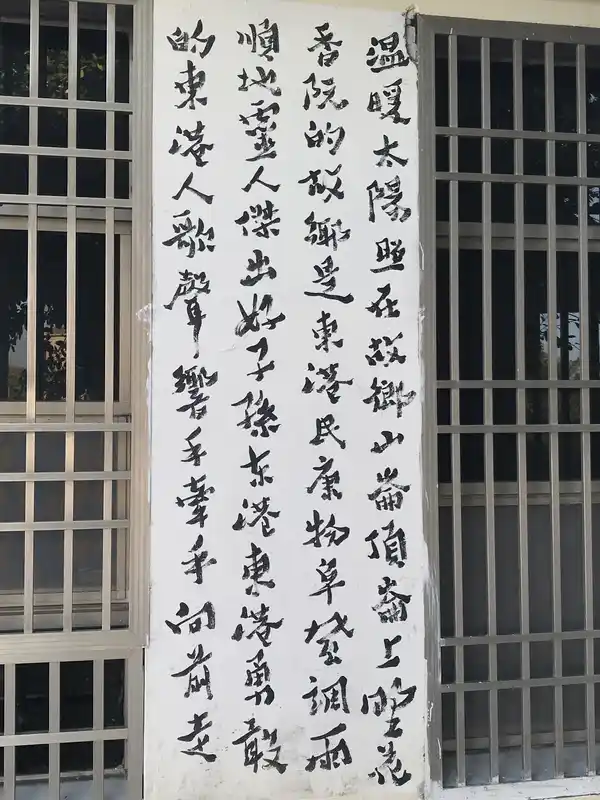 温暖太陽照在故鄉山崙頂崙上野花
香阮的故鄉是東港民康物阜風調雨
順地靈人傑出好子孫東港東港勇敢
的東港人歌聲響手牽手向前走